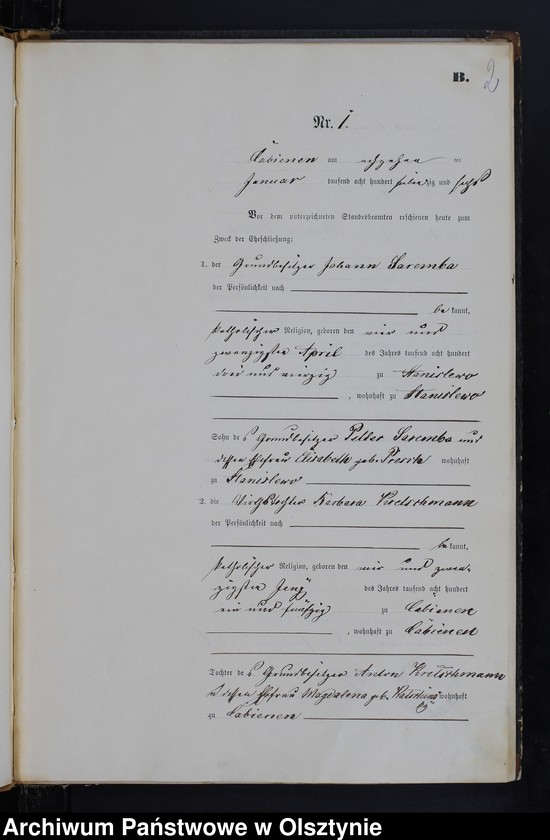 B. 2
Nr. 1.
Labienen am achtzehn ten
Januar tausend acht hundert siebenzig und sechs
Vor dem unterzeichneten Standesbeamten erschienen heute zum
Zweck der Eheschließung:
1. der Grundbesitzer Johann Saremba
der Persönlichkeit nach
bekannt,
katholischer Religion, geboren den vier und
zwanzigsten April des Jahres tausend acht hundert
drei und vierzig zu Stanislewo
, wohnhaft zu Stanislewo
Sohn des Grundbesitzer Petter Saremba und
dessen Ehefrau Elisabeth geb. wohnhaft
zu Stanislewo
2. die Wirthstochter Barbara Kretschmann
der Persönlichkeit nach
bekannt,
katholischer Religion, geboren den vier und zwan-
zigsten des Jahres tausend acht hundert
ein und fünfzig zu Labienen
, wohnhaft zu Labienen
Tochter des Grundbesitzer Anton Kretschmann
u dessen Ehefrau Magdalena geb. wohnhaft
zu Labienen
Archiwum Państwowe w Olsztynie